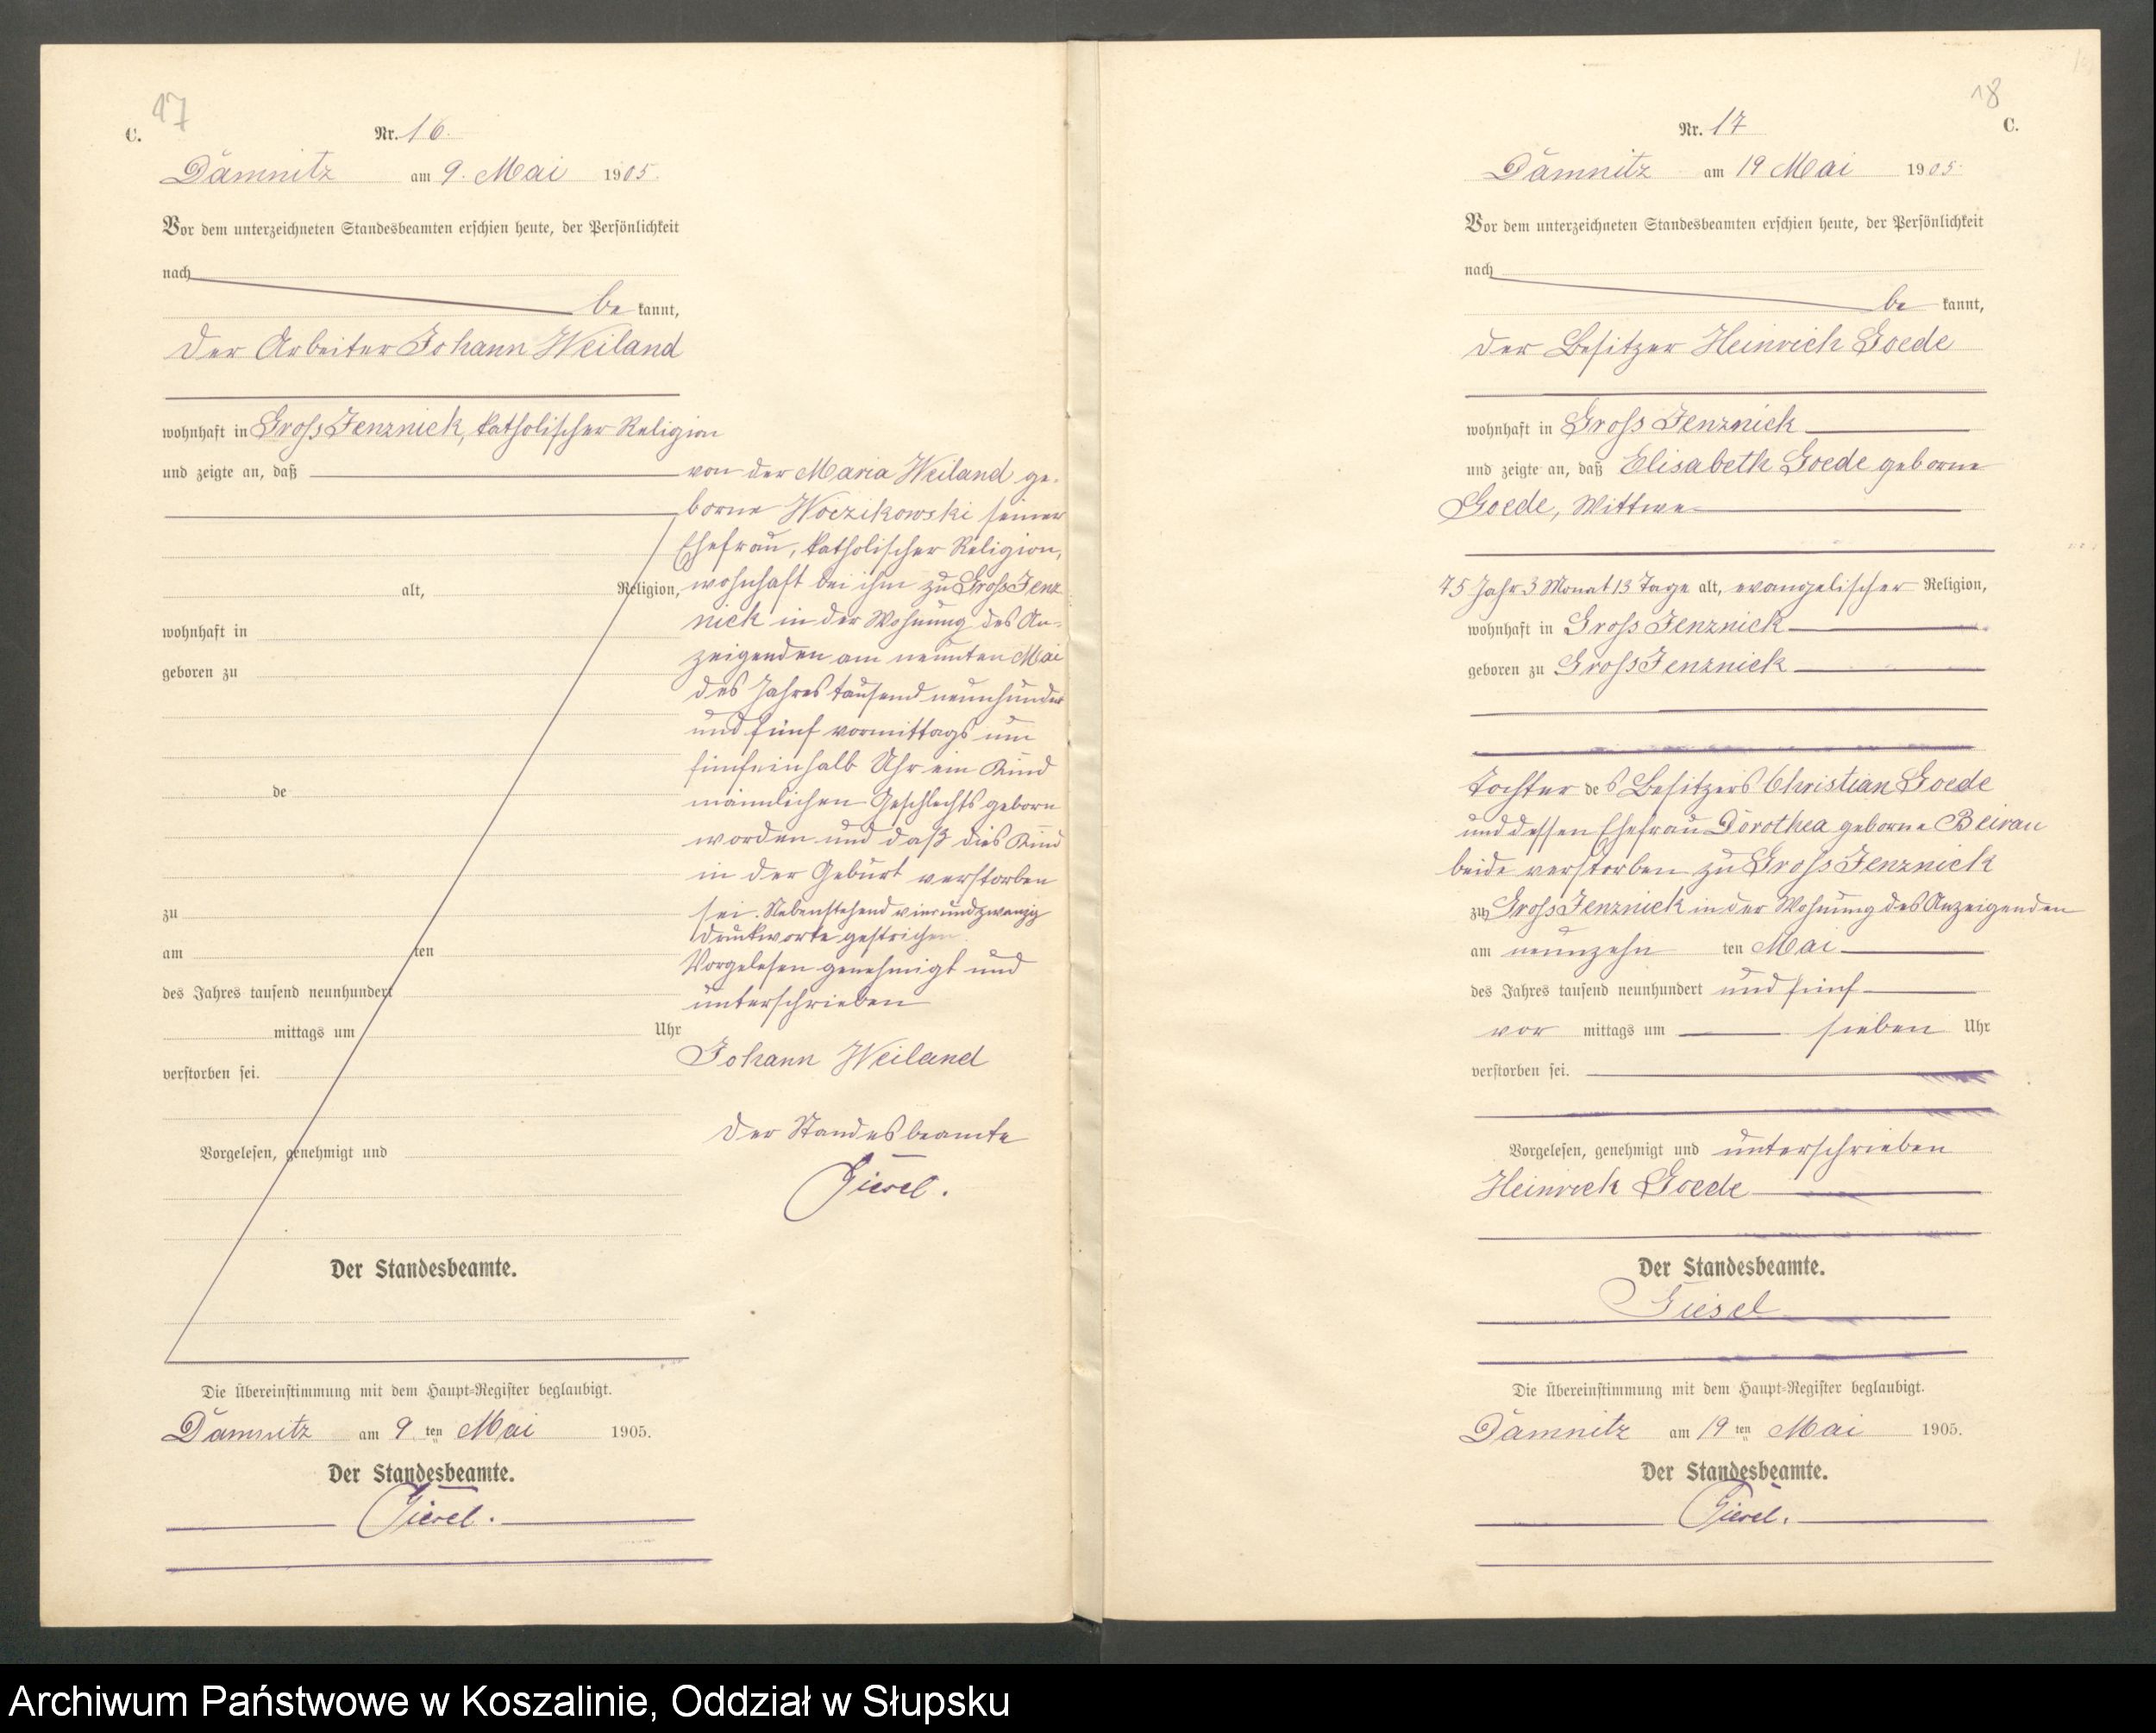 17
C.
Nr. 16.
Dämnitz am 9. Mai 1905.
Vor dem unterzeichneten Standesbeamten erschien heute, der Persönlichkeit
nach
be kannt,
der Arbeiter Johann Weiland
wohnhaft in Gross Jenznick, katholischer Religion
und zeigte an, daß
von der Maria Weiland ge-
borne Woizikowski seiner
Ehefrau, katholischer Religion,
alt, Religion,
wohnhaft bei ihm zu Gross Jenz
nick in der Wohnung des An-
wohnhaft in
zeigenden am neunten Mai
geboren zu
des Jahres tausend neunhundert
und fünf vormittags um
fünfeinhalb Uhr ein Kind
de
männlichen Geschlechts geboren
worden und daß dies Kind
in der Geburt verstorben
zu
sei. Nebenstehend vierundzwanzig
Druckworte gestrichen.
am ten
Vorgelesen genehmigt und
des Jahres tausend neunhundert
unterschrieben
mittags um Uhr
Johann Weiland
verstorben sei.
Der Standesbeamte
Vorgelesen, genehmigt und
Giesel.
Der Standesbeamte.
Die Übereinstimmung mit dem Haupt-Register beglaubigt.
Dämnitz am 9 ten Mai 1905.
Der Standesbeamte.
Giesel.
18
C.
Nr. 17
Dämnitz am 19 Mai 1905.
Vor dem unterzeichneten Standesbeamten erschien heute, der Persönlichkeit
nach
be kannt,
der Besitzer Heinrich Goede
wohnhaft in Gross Jenznick
und zeigte an, daß Elisabeth Goede geborne
Goede, Wittwe
75 Jahr 3 Monat 13 Tage alt, evangelischer Religion,
wohnhaft in Gross Jenznick
geboren zu Gross Jenznick
Tochter des Besitzers Christian Goede
und dessen Ehefrau Dorothea geborne Beirau
beide verstorben zu Gross Jenznick
zu Gross Jenznick in der Wohnung des Anzeigenden
am neunzehn ten Mai
des Jahres tausend neunhundert und fünf
vor mittags um sieben Uhr
verstorben sei.
Vorgelesen, genehmigt und unterschrieben
Heinrich Goede
Der Standesbeamte.
Giesel
Die Übereinstimmung mit dem Haupt-Register beglaubigt.
Dämnitz am 19 ten Mai 1905.
Der Standesbeamte.
Giesel.
Archiwum Państwowe w Koszalinie, Oddział w Słupsku